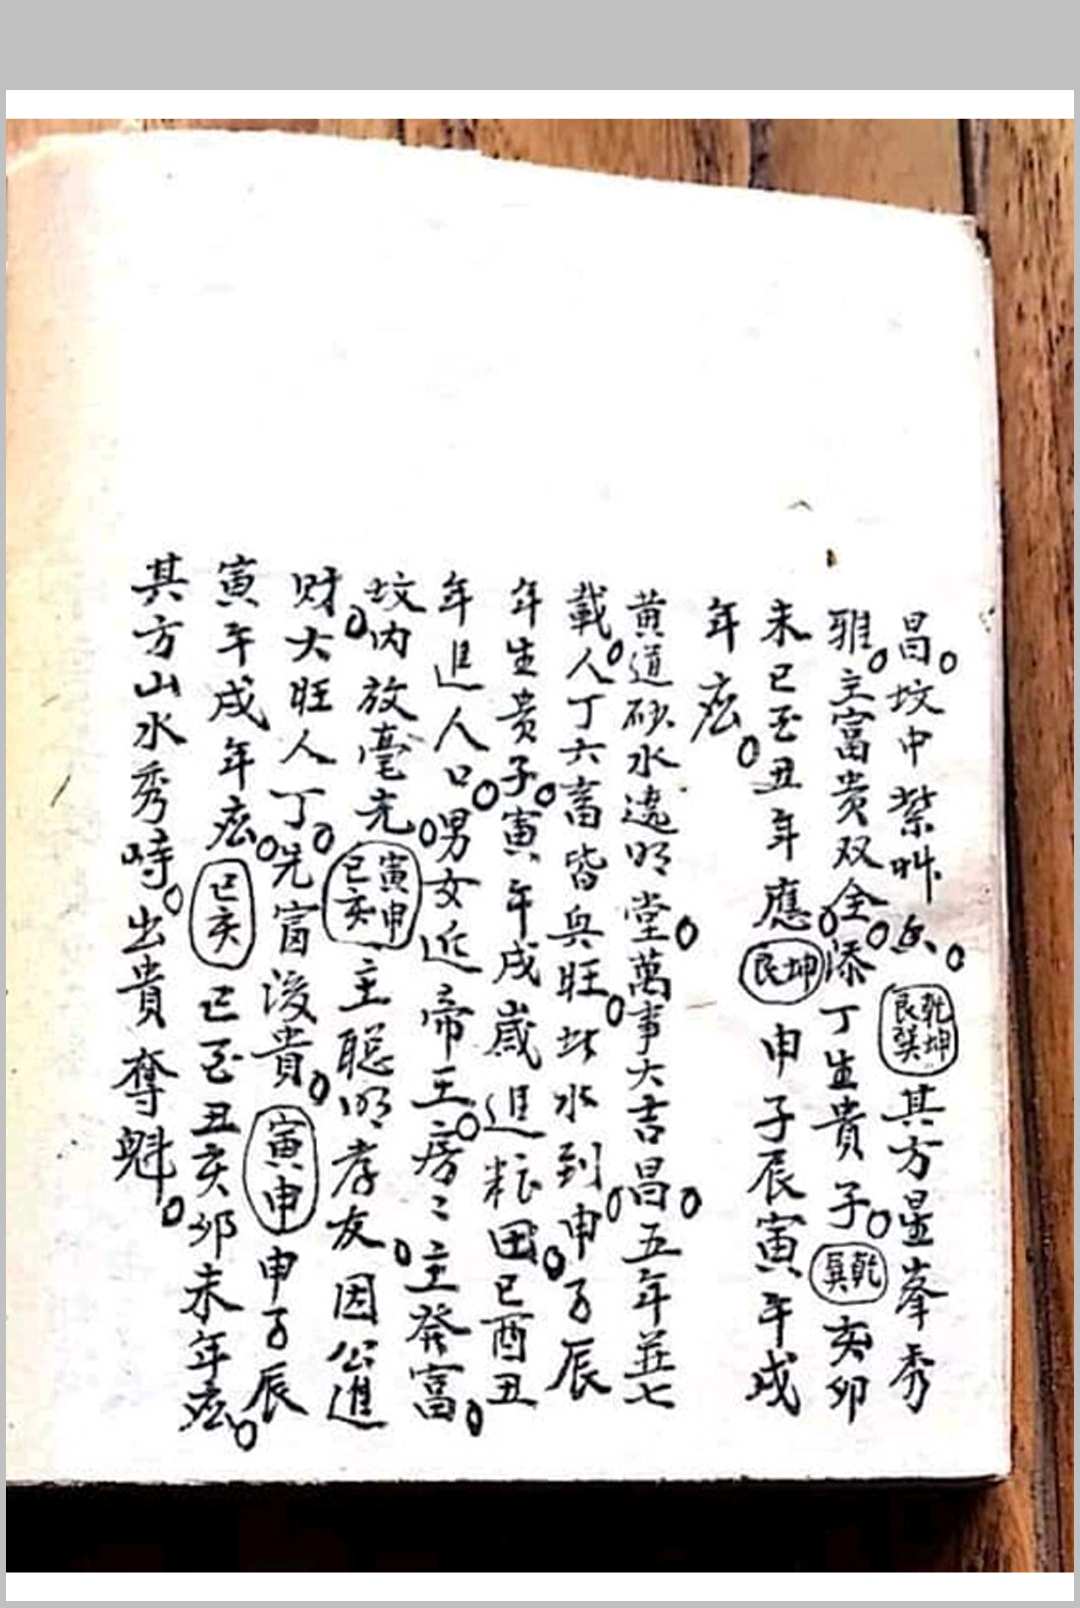 昌。坟中紫叫𠅤。乾坤艮巽其方星峯秀
雅。主富贵双全。添丁生貴子。乾巽亥卯
未巳酉丑年應。坤艮申子辰寅午戌
年应。
黄道砂水遶明堂。萬事大吉昌。五年并七
載。人丁六畜皆兴旺。此水到。申子辰
年生贵子。寅午戌歲進粮田。巳酉丑
年進人口。男女近帝王。房〻主発富。
坟内放毫光。寅申巳亥主聪明孝友。因公進
财。大旺人丁。先富後貴。寅申申子辰
寅午戌年应。巳亥巳酉丑亥卯未年应。
其方山水秀時。出貴奪魁。